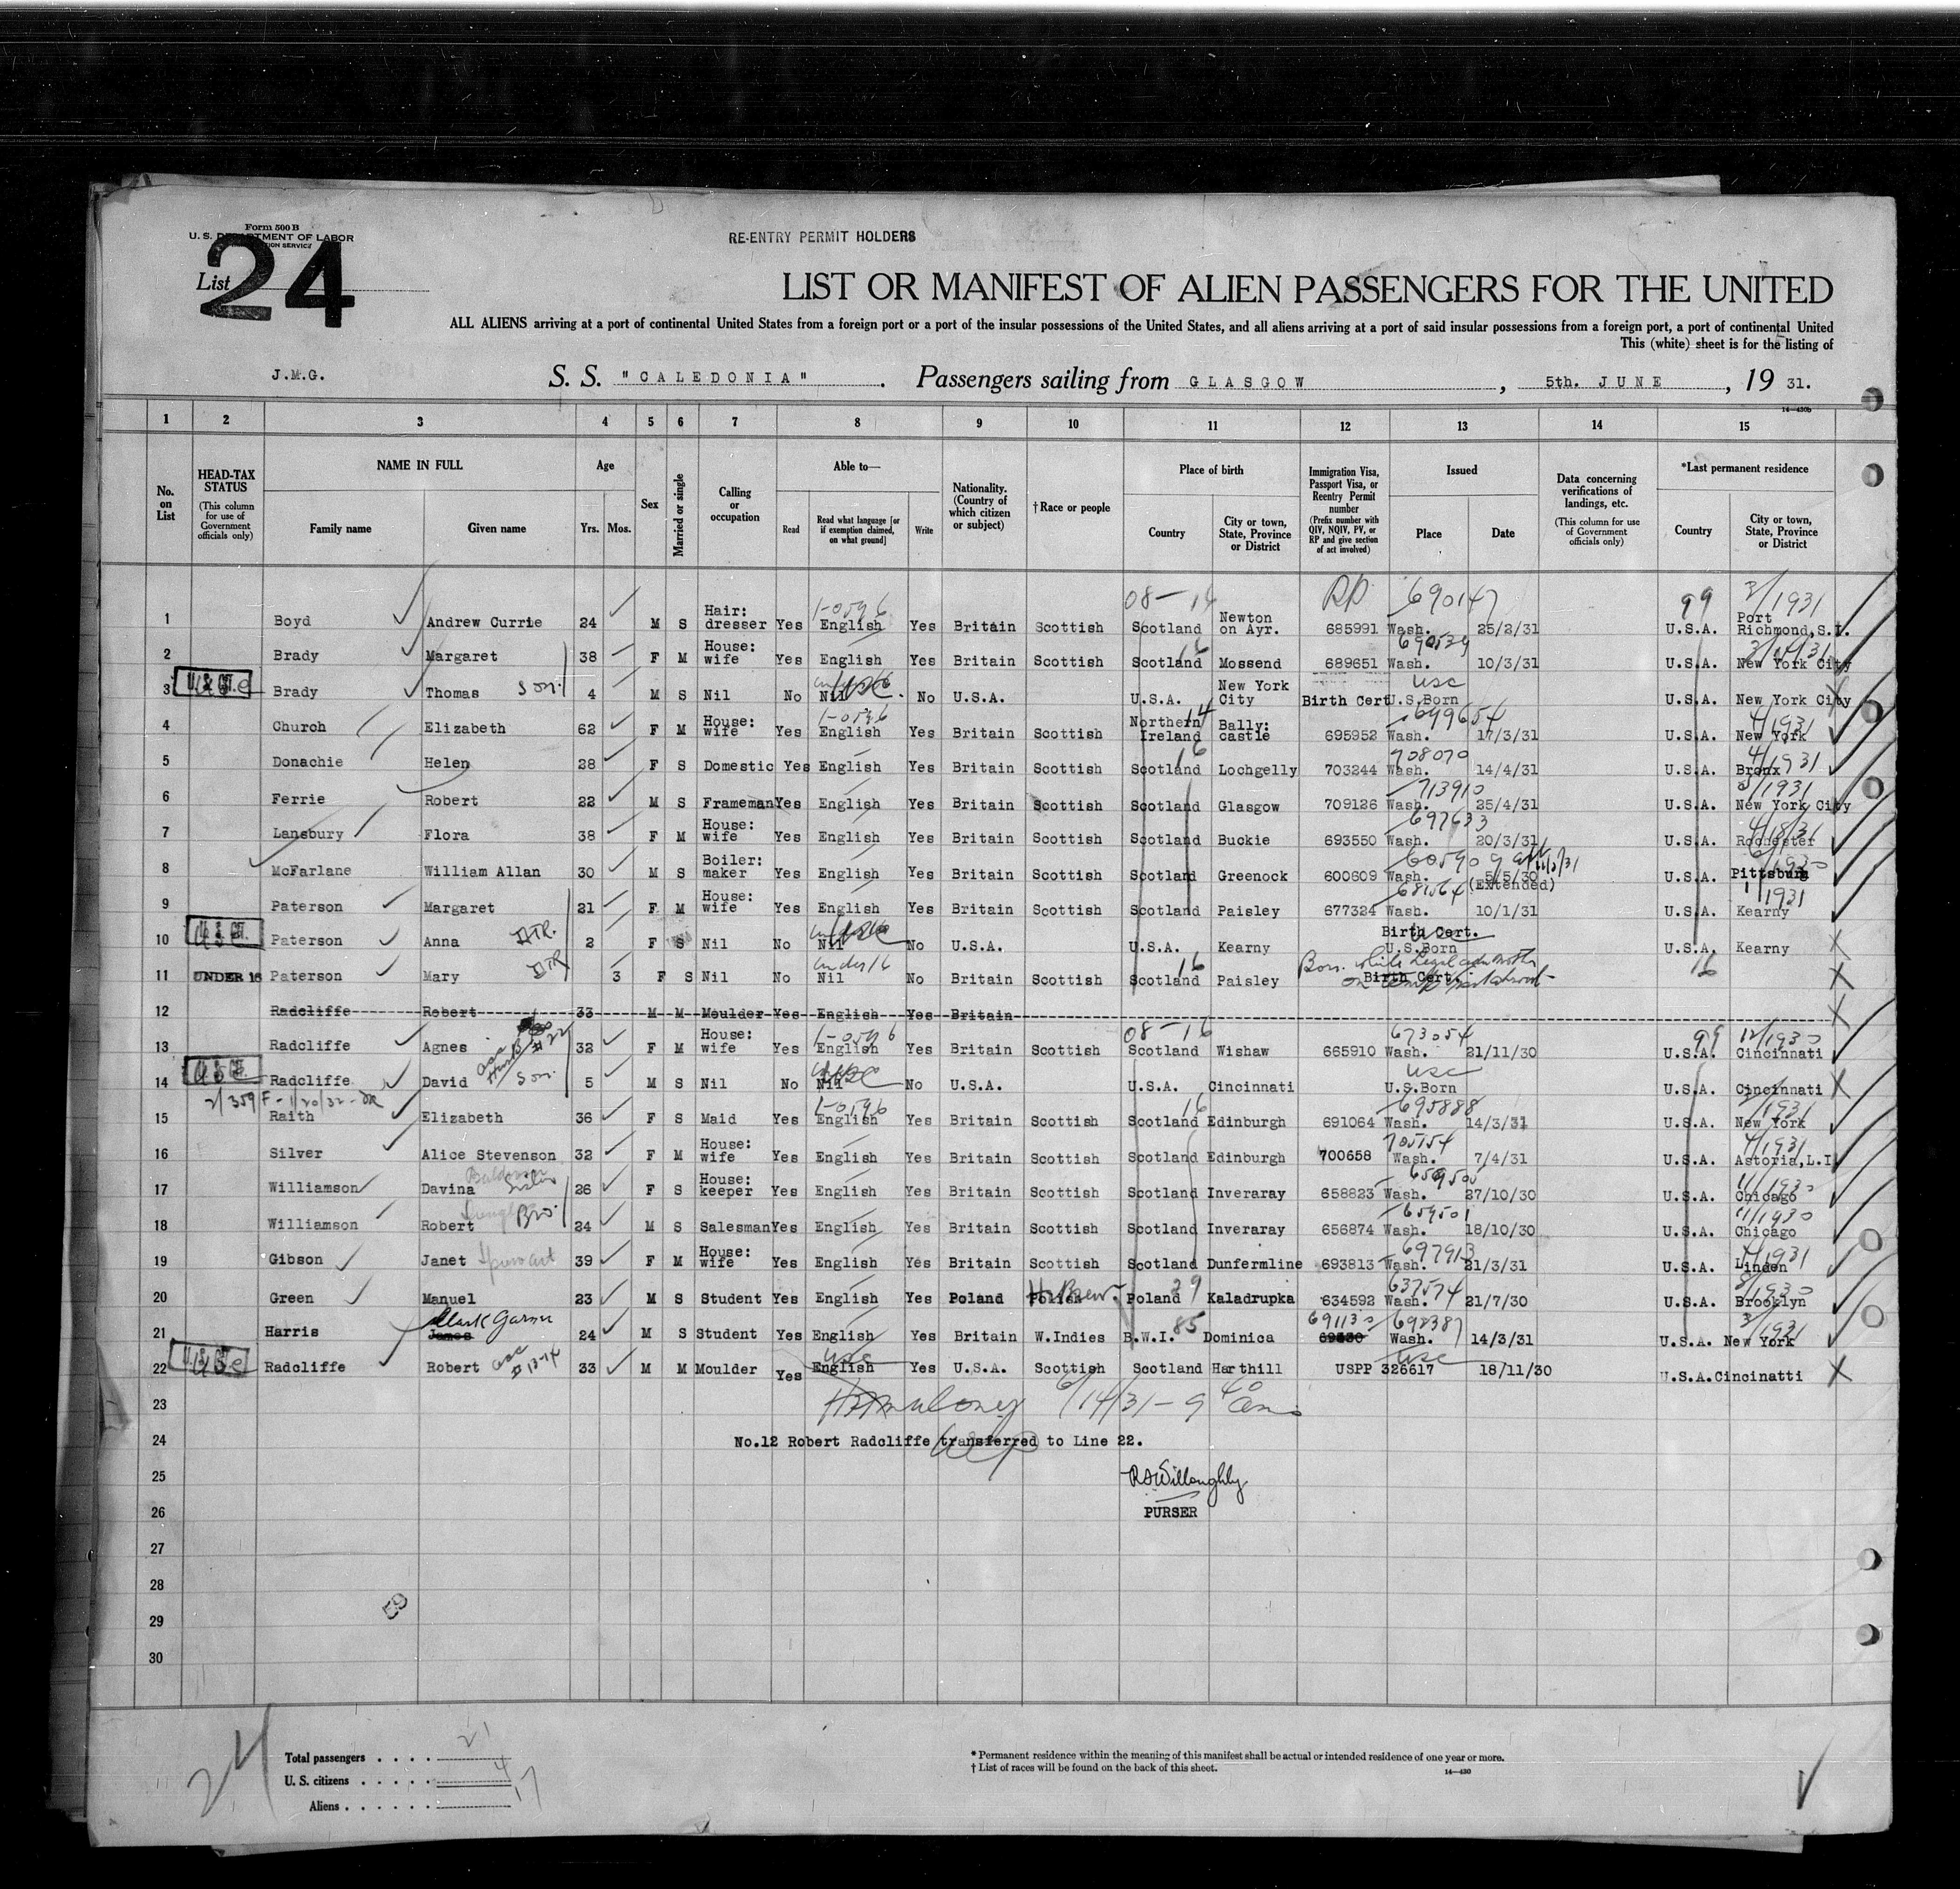 Form 500 B
U. S. DEPARTMENT OF LABOR
List 24
RE-ENTRY PERMIT HOLDERS
LIST OR MANIFEST OF ALIEN PASSENGERS FOR THE UNITED
ALL ALIENS arriving at a port of continental United States from a foreign port or a port of the insular possessions of the United States, and all aliens arriving at a port of said insular possessions from a foreign port, a port of continental United
This (white) sheet is for the listing of
J.M.G. S. S. "CALEDONIA". Passengers sailing from GLASGOW, 5th. JUNE, 19 31.
14-430b
1 2 3 4 5 6 7 8 9 10 11 12 13 14 15
No. on List
HEAD-TAX STATUS (This column for use of Government officials only)
NAME IN FULL Family name Given name
Age Yrs. Mos.
Sex
Married or single
Calling or occupation
Able to— Read Read what language [or if exemption claimed, on what ground] Write
Nationality. (Country of which citizen or subject)
†Race or people
Place of birth Country City or town, State, Province or District
Immigration Visa, Passport Visa, or Reentry Permit number (Prefix number with QIV, NQIV, PV, or RP and give section of act involved)
Issued Place Date
Data concerning verifications of landings, etc. (This column for use of Government officials only)
*Last permanent residence Country City or town, State, Province or District
08-16 690147 99 3/1931
1 Boyd Andrew Currie 24 M S Hair: dresser Yes English Yes Britain Scottish Scotland Newton on Ayr. 685991 Wash. 25/2/31 U.S.A. Port Richmond,S.I.
2 Brady Margaret 38 F M House: wife Yes English Yes Britain Scottish Scotland Mossend 689651 Wash. 10/3/31 U.S.A. New York City
3 Brady Thomas son. 4 M S Nil No Nil No U.S.A. U.S.A. New York City Birth Cert U.S.Born usc U.S.A. New York City
4 Church Elizabeth 62 F M House: wife Yes English Yes Britain Scottish Northern Ireland Bally: castle 695952 Wash. 699654 17/3/31 U.S.A. New York 4/1931
5 Donachie Helen 28 F S Domestic Yes English Yes Britain Scottish Scotland Lochgelly 703244 Wash. 708070 14/4/31 U.S.A. Bronx 4/1931
6 Ferrie Robert 22 M S Frameman Yes English Yes Britain Scottish Scotland Glasgow 709126 Wash. 713910 25/4/31 U.S.A. New York City 5/1931
7 Lansbury Flora 38 F M House: wife Yes English Yes Britain Scottish Scotland Buckie 693550 Wash. 697633 20/3/31 U.S.A. Rochester
8 McFarlane William Allan 30 M S Boiler: maker Yes English Yes Britain Scottish Scotland Greenock 600609 Wash. 5/5/30 (Extended) U.S.A. Pittsburg
9 Paterson Margaret 21 F M House: wife Yes English Yes Britain Scottish Scotland Paisley 677324 Wash. 681564 10/1/31 U.S.A. Kearny 1/1931
10 Paterson Anna DTR. 2 F S Nil No Nil No U.S.A. U.S.A. Kearny Birth Cert. U.S.Born U.S.A. Kearny
11 UNDER 16 Paterson Mary DTR 3 F S Nil No under 16 Nil No Britain Scottish Scotland Paisley Birth Cert. 16
12 Radcliffe Robert 33 M M Moulder Yes English Yes Britain
13 Radcliffe Agnes 32 F M House: wife Yes English Yes Britain Scottish 08-16 Scotland Wishaw 665910 Wash. 673054 21/11/30 99 U.S.A. Cincinnati 12/1930
14 Radcliffe David son. 5 M S Nil No Nil No U.S.A. U.S.A. Cincinnati usc U.S.Born U.S.A. Cincinnati
2/359F - 1/20/32
15 Raith Elizabeth 36 F S Maid Yes English Yes Britain Scottish Scotland Edinburgh 691064 Wash. 695888 14/3/31 U.S.A. New York
16 Silver Alice Stevenson 32 F M House: wife Yes English Yes Britain Scottish Scotland Edinburgh 700658 Wash. 705154 7/4/31 U.S.A. Astoria,L.I. 4/1931
17 Williamson Davina 26 F S House: keeper Yes English Yes Britain Scottish Scotland Inveraray 658823 Wash. 27/10/30 U.S.A. Chicago 11/1930
18 Williamson Robert Bro. 24 M S Salesman Yes English Yes Britain Scottish Scotland Inveraray 656874 Wash. 659501 18/10/30 U.S.A. Chicago 11/1930
19 Gibson Janet 39 F M House: wife Yes English Yes Britain Scottish Scotland Dunfermline 693813 Wash. 697913 21/3/31 U.S.A. Linden 4/1931
20 Green Manuel 23 M S Student Yes English Yes Poland Hebrew Poland 29 Kaladrupka 634592 Wash. 637574 21/7/30 U.S.A. Brooklyn 8/1930
21 Harris James 24 M S Student Yes English Yes Britain W.Indies B.W.I. 85 Dominica 691130 Wash. 698387 14/3/31 U.S.A. New York 3/1931
22 Radcliffe Robert 33 M M Moulder Yes English Yes U.S.A. Scottish Scotland Harthill USPP 326617 usc 18/11/30 U.S.A. Cincinatti
23 6/14/31 - 9 40 am
24 No.12 Robert Radcliffe transferred to Line 22.
25 RAWilloughby
26 PURSER
27
28
29
30
24
Total passengers . . . . 21
U. S. citizens . . . . . 4
Aliens . . . . . . 17
* Permanent residence within the meaning of this manifest shall be actual or intended residence of one year or more.
† List of races will be found on the back of this sheet.
14-430